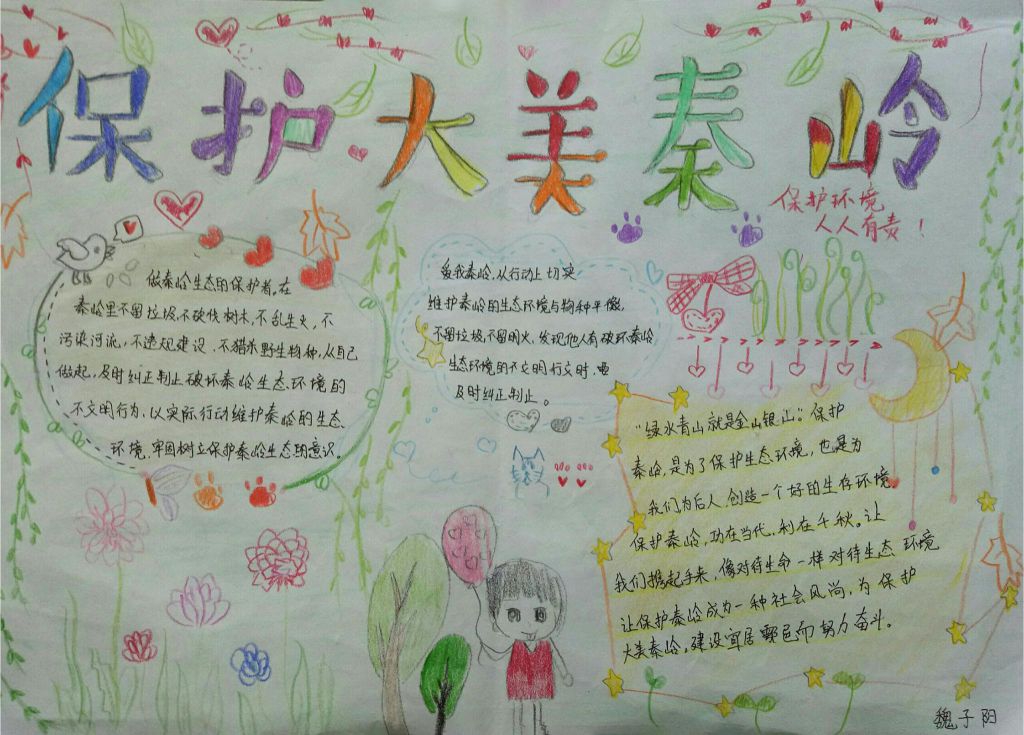 保护大美秦岭
保护环境
人人有责！
做秦岭生态的保护者。在
秦岭里不留垃圾,不砍伐树木,不乱生火,不
污染河流,不违规建设,不猎杀野生物种,从自己
做起,及时纠正制止破坏秦岭生态环境的
不文明行为,以实际行动维护秦岭的生态
环境,牢固树立保护秦岭生态的意识。
爱我秦岭,从行动上切实
维护秦岭的生态环境与物种平衡,
不留垃圾,不留明火,发现他人有破坏秦岭
生态环境的不文明行文时,要
及时纠正制止。
“绿水青山就是金山银山”。保护
秦岭,是为了保护生态环境,也是为
我们为后人创造一个好的生存环境
保护秦岭,功在当代,利在千秋。让
我们携起手来,像对待生命一样对待生态环境
让保护秦岭成为一种社会风尚,为保护
大美秦岭,建设宜居而努力奋斗。
魏子阳